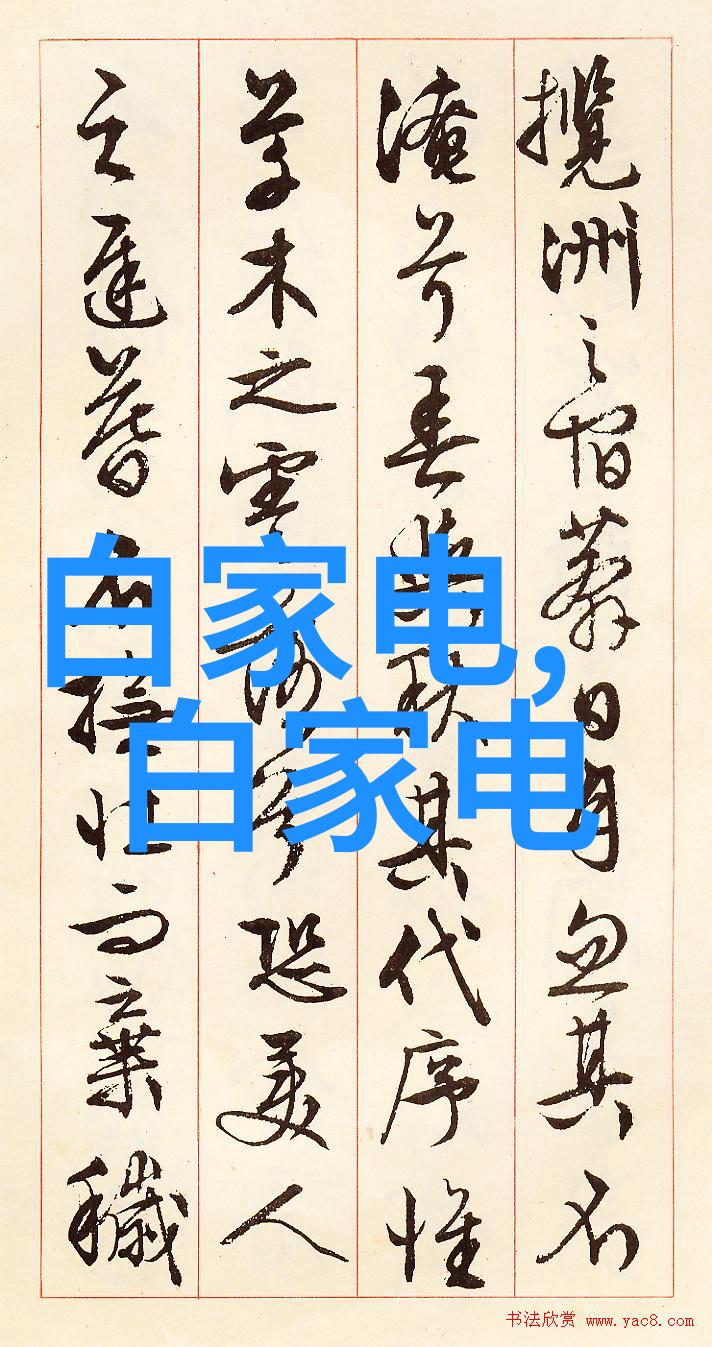 攬洲之宿莽日月忽其不
淹兮春與秋其代序惟
草木之零落兮恐美人
之遲暮不撫壯而棄穢
白家电,
白家电
书法欣赏 www.yac8.com